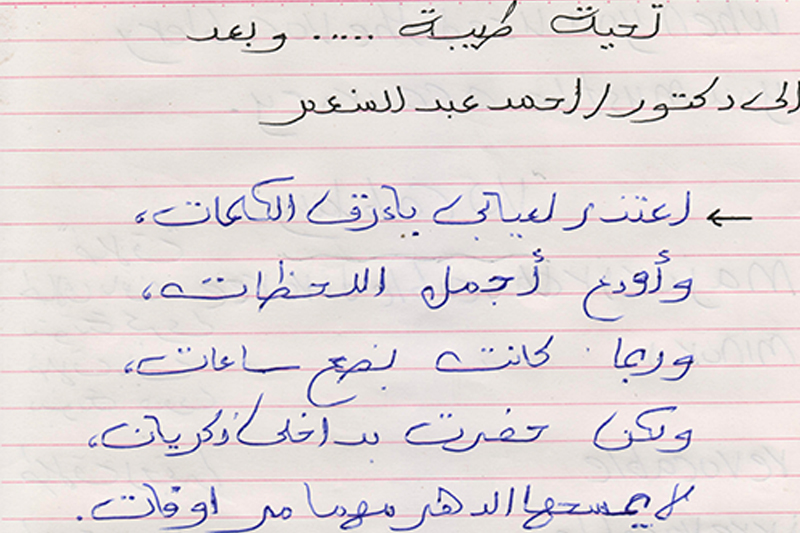 تحية طيبة ..... وبعد
إلى دكتور/احمد عبد المنعم
← اعتذر لغيابي بأرق الكلمات،
وأودع أجمل اللحظات،
وربما كانت بضع ساعات،
ولكن حفرت بداخلي ذكريات،
لا يمسحها الدهر مهما مر اوقات.